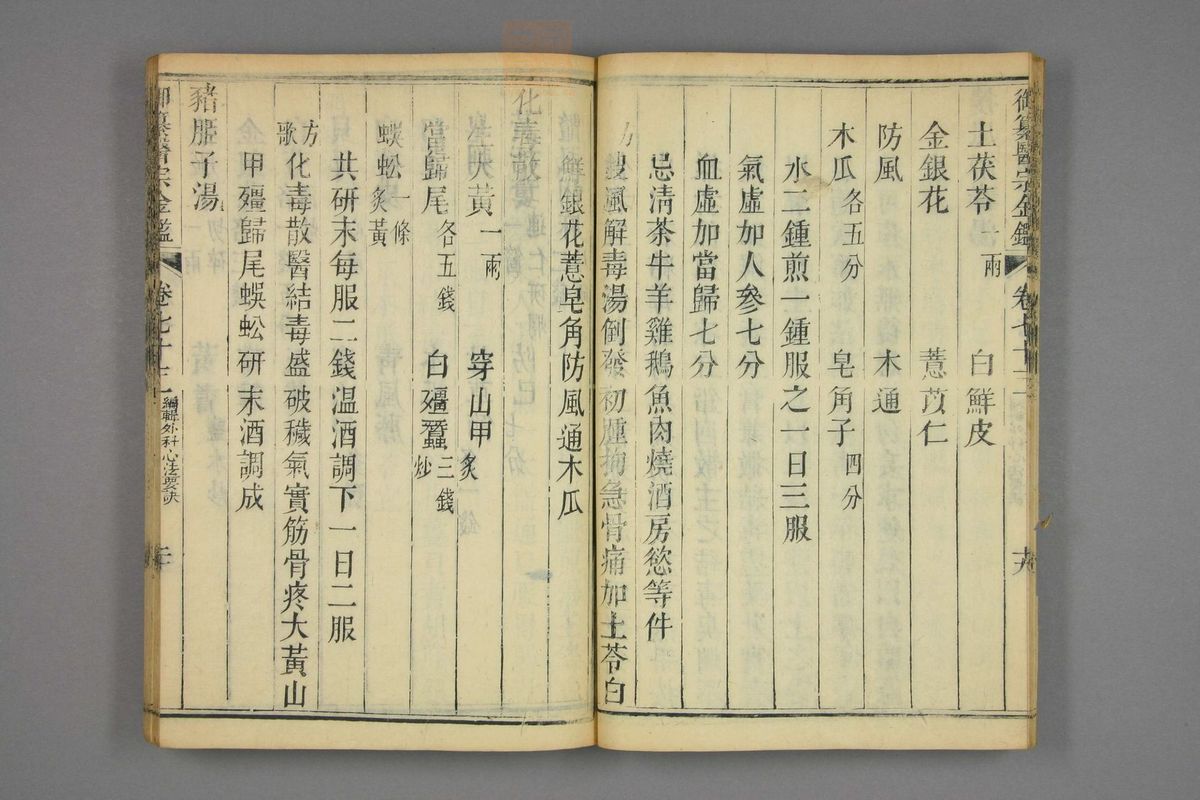 御纂醫宗金鑑 卷七十三 六
土茯苓一兩 白鮮皮
金銀花 薏苡仁
防風 木通
木瓜各五分 皂角子四分
水二鍾煎一鍾服之一日三服
氣虛加人參七分
血虛加當歸七分
忌清茶牛羊雞鵝魚肉燒酒房慾等件
搜風解毒湯倒發初腫拘急骨痛加土苓白
鮮銀花薏皂角防風通木瓜
化毒散
大黃一兩 穿山甲炙
當歸尾各五錢 白殭蠶三錢炒
蜈蚣一條炙黃
共研末每服二錢溫酒調下一日二服
方歌 化毒散醫結毒盛破穢氣實筋骨疼大黃山
甲殭歸尾蜈蚣研末酒調成
豬胆子湯
御纂醫宗金鑑 卷七十三 編輯外科心法要訣